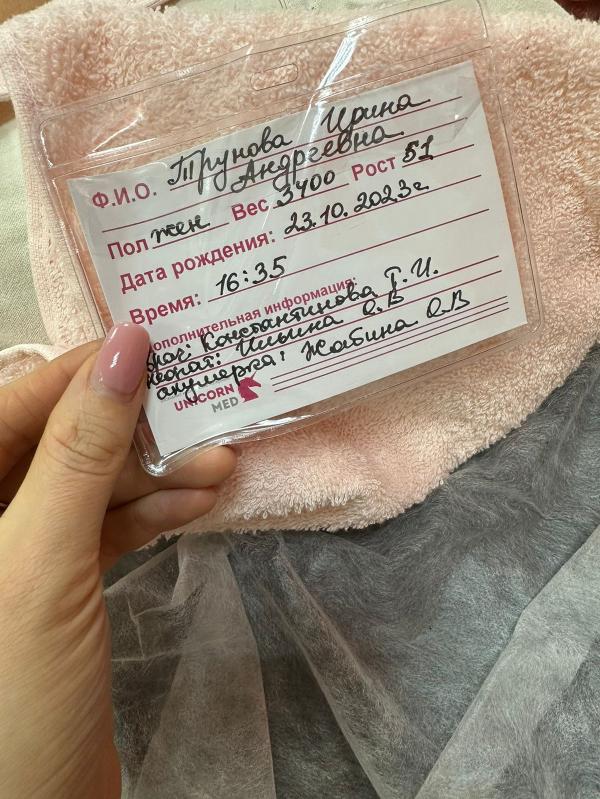 Ф.И.О. Трунова Ирина
Андреевна
Пол жен Вес 3400 Рост 51
Дата рождения: 23.10.2023г
Время: 16:35
Дополнительная информация:
врач: Константинова Г.И.
неонат: Ильина О.В
акушерка: Жабина О.В
UNICORN
MED